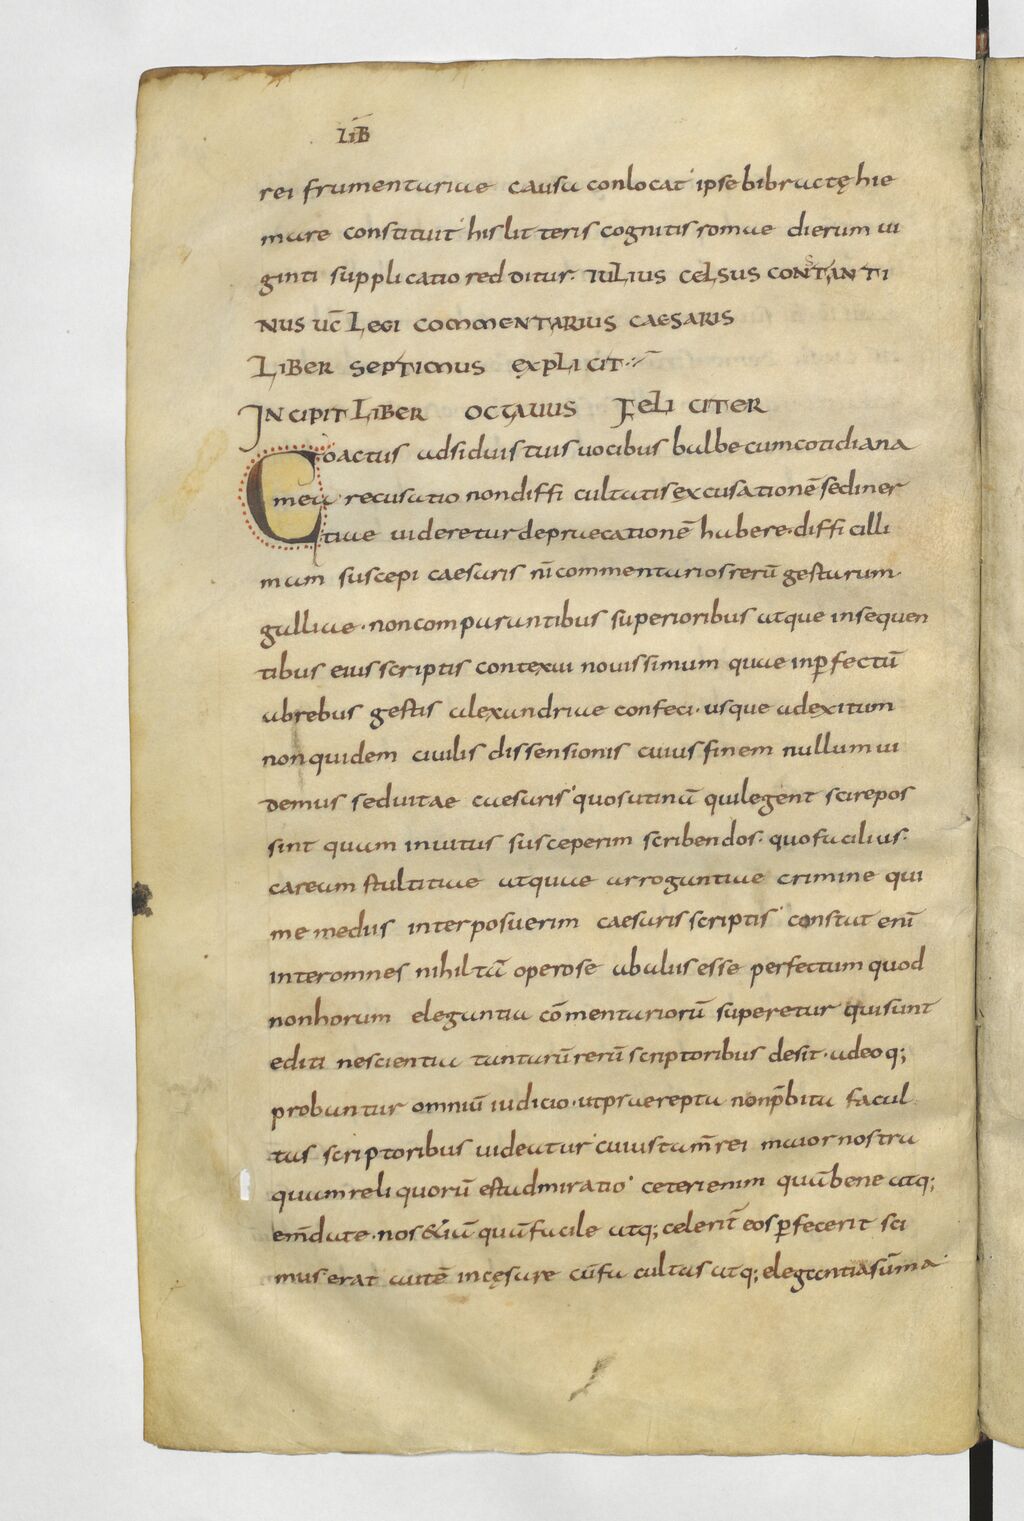 LIB̄
rei frumentariae causa conlocat ipse bibractę hie
mare constituit his litteris cognitis romae dierum ui
ginti supplicatio redditur. IULIUS CELSUS CONSTANTI
NUS UC̄ LEGI COMMENTARIUS CAESARIS
LIBER SEPTIMUS EXPLICIT
INCIPIT LIBER OCTAUUS FELICITER
Coactus adsiduis tuis uocibus balbe cum cotidiana
mea recusatio non difficultatis excusationē sed iner
tiae uideretur depraecationē habere. difficilli
mam suscepi caesaris nr̄i commentarios rerū gestarum
galliae. non comparantibus superioribus atque insequen
tibus eius scriptis contexui nouissimum quae inp̱fectū
ab rebus gestis alexandriae confeci. usque ad exitum
non quidem ciuilis dissensionis cuius finem nullum ui
demus sed uitae caesaris quos utinā qui legent scire pos
sint quam inuitus susceperim scribendos. quo facilius.
caream stultitiae atquae arrogantiae crimine qui
me medus interposuerim caesaris scriptis constat enī
inter omnes nihil tā operose ab alus esse perfectum quod
non horum elegantia cōmentariorū superetur qui sunt
editi ne scientia tantarū rerū scriptoribus desit. adeoq;
probantur omniū iudicio. ut praerepta non p̄bita facul
tas scriptoribus uideatur cuius tam̄ rei maior nostra
quam reliquorū est admiratio ceteri enim quā bene atq;
em̄date. nos &iā quā facile atq; celerit̄ eos p̱fecerit sci
mus erat autē in cęsare cū facultas atq; elegantia sūma